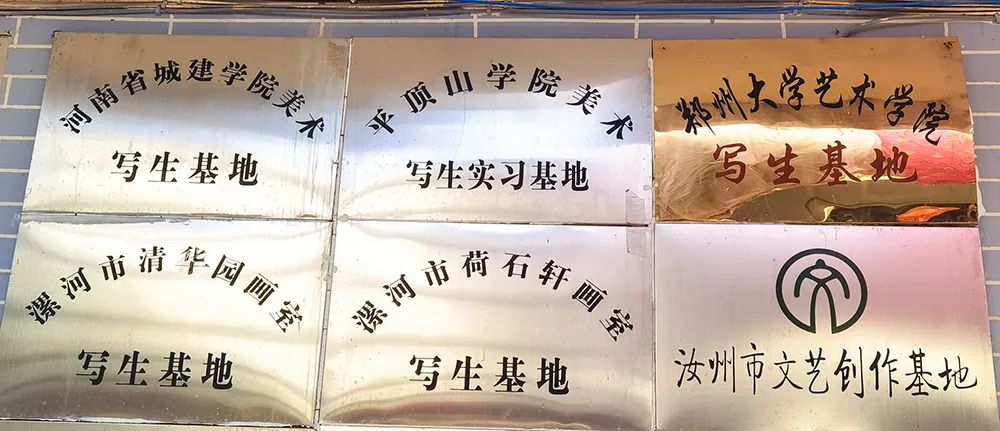 河南省城建学院美术
写生基地
平顶山学院美术
写生实习基地
郑州大学艺术学院
写生基地
漯河市清华园画室
写生基地
漯河市荷石轩画室
写生基地
汝州市文艺创作基地